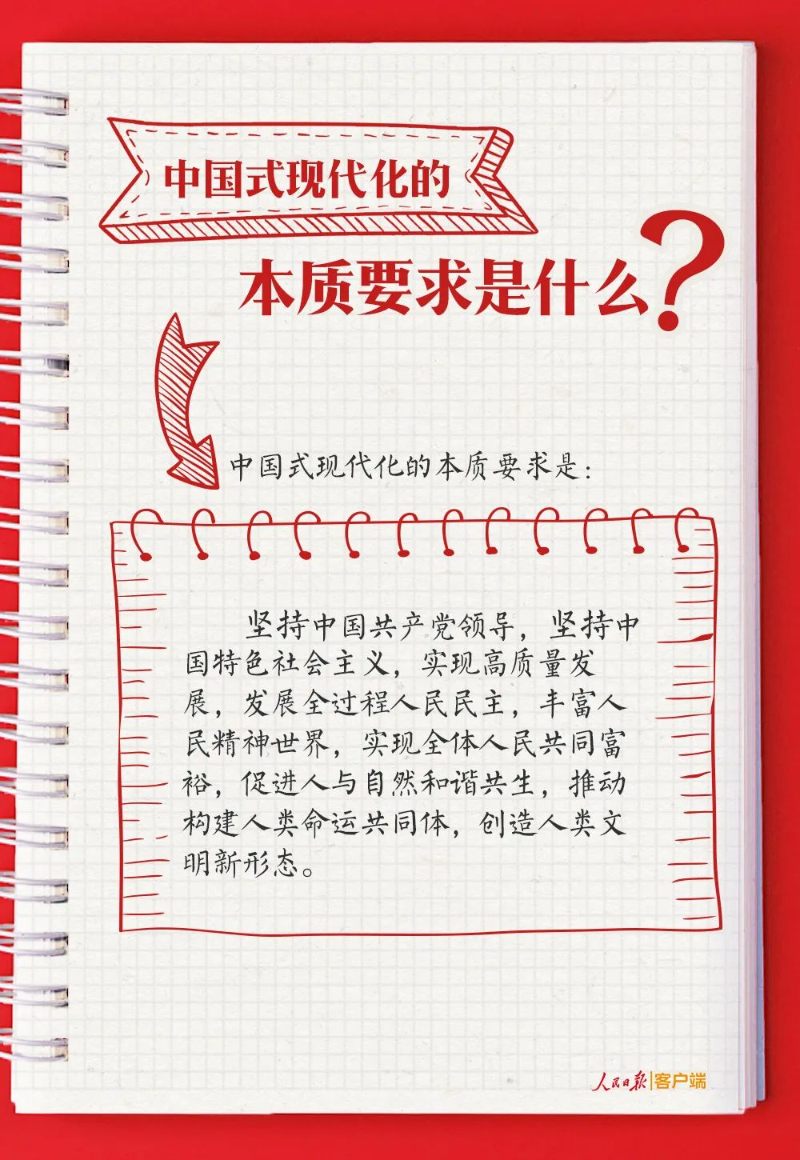 中国式现代化的
本质要求是什么?
中国式现代化的本质要求是：
坚持中国共产党领导，坚持中
国特色社会主义，实现高质量发
展，发展全过程人民民主，丰富人
民精神世界，实现全体人民共同富
裕，促进人与自然和谐共生，推动
构建人类命运共同体，创造人类文
明新形态。
人民日报|客户端